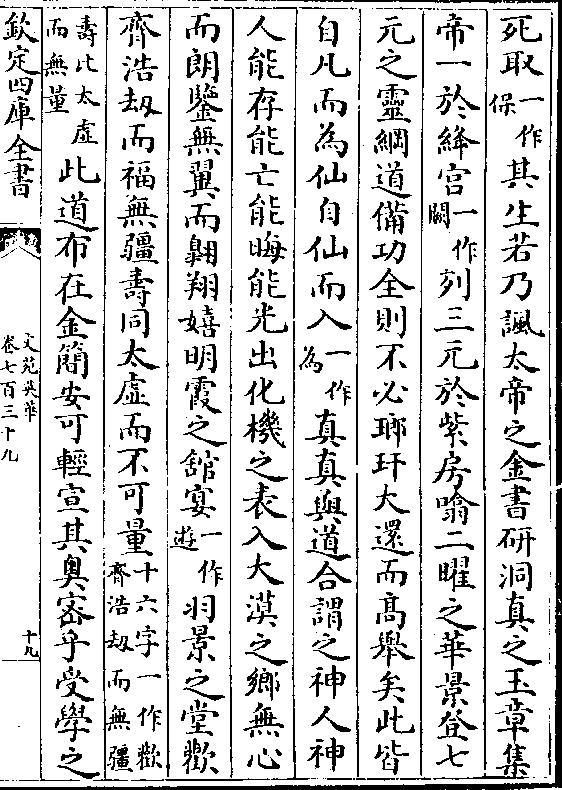 死取一作保其生若乃諷太帝之金書研洞真之玉章集
帝一於絳宮一作闕列三元於紫房噏二曜之華景登七
元之靈綱道備功全則不必瑯玕大還而高舉矣此皆
自凡而為仙自仙而入一作為真真與道合謂之神人神
人能存能亡能晦能光出化機之表入大漠之鄉無心
而朗鑒無翼而翺翔嬉明霞之館宴一作遊羽景之堂歡
齊浩劫而福無疆壽同太虛而不可量十六字一作歡齊浩劫而無疆
壽比太虛而無量此道布在金簡安可輕宣其奧密乎受學之
欽定四庫全書
文苑英華
卷七百三十九
十九